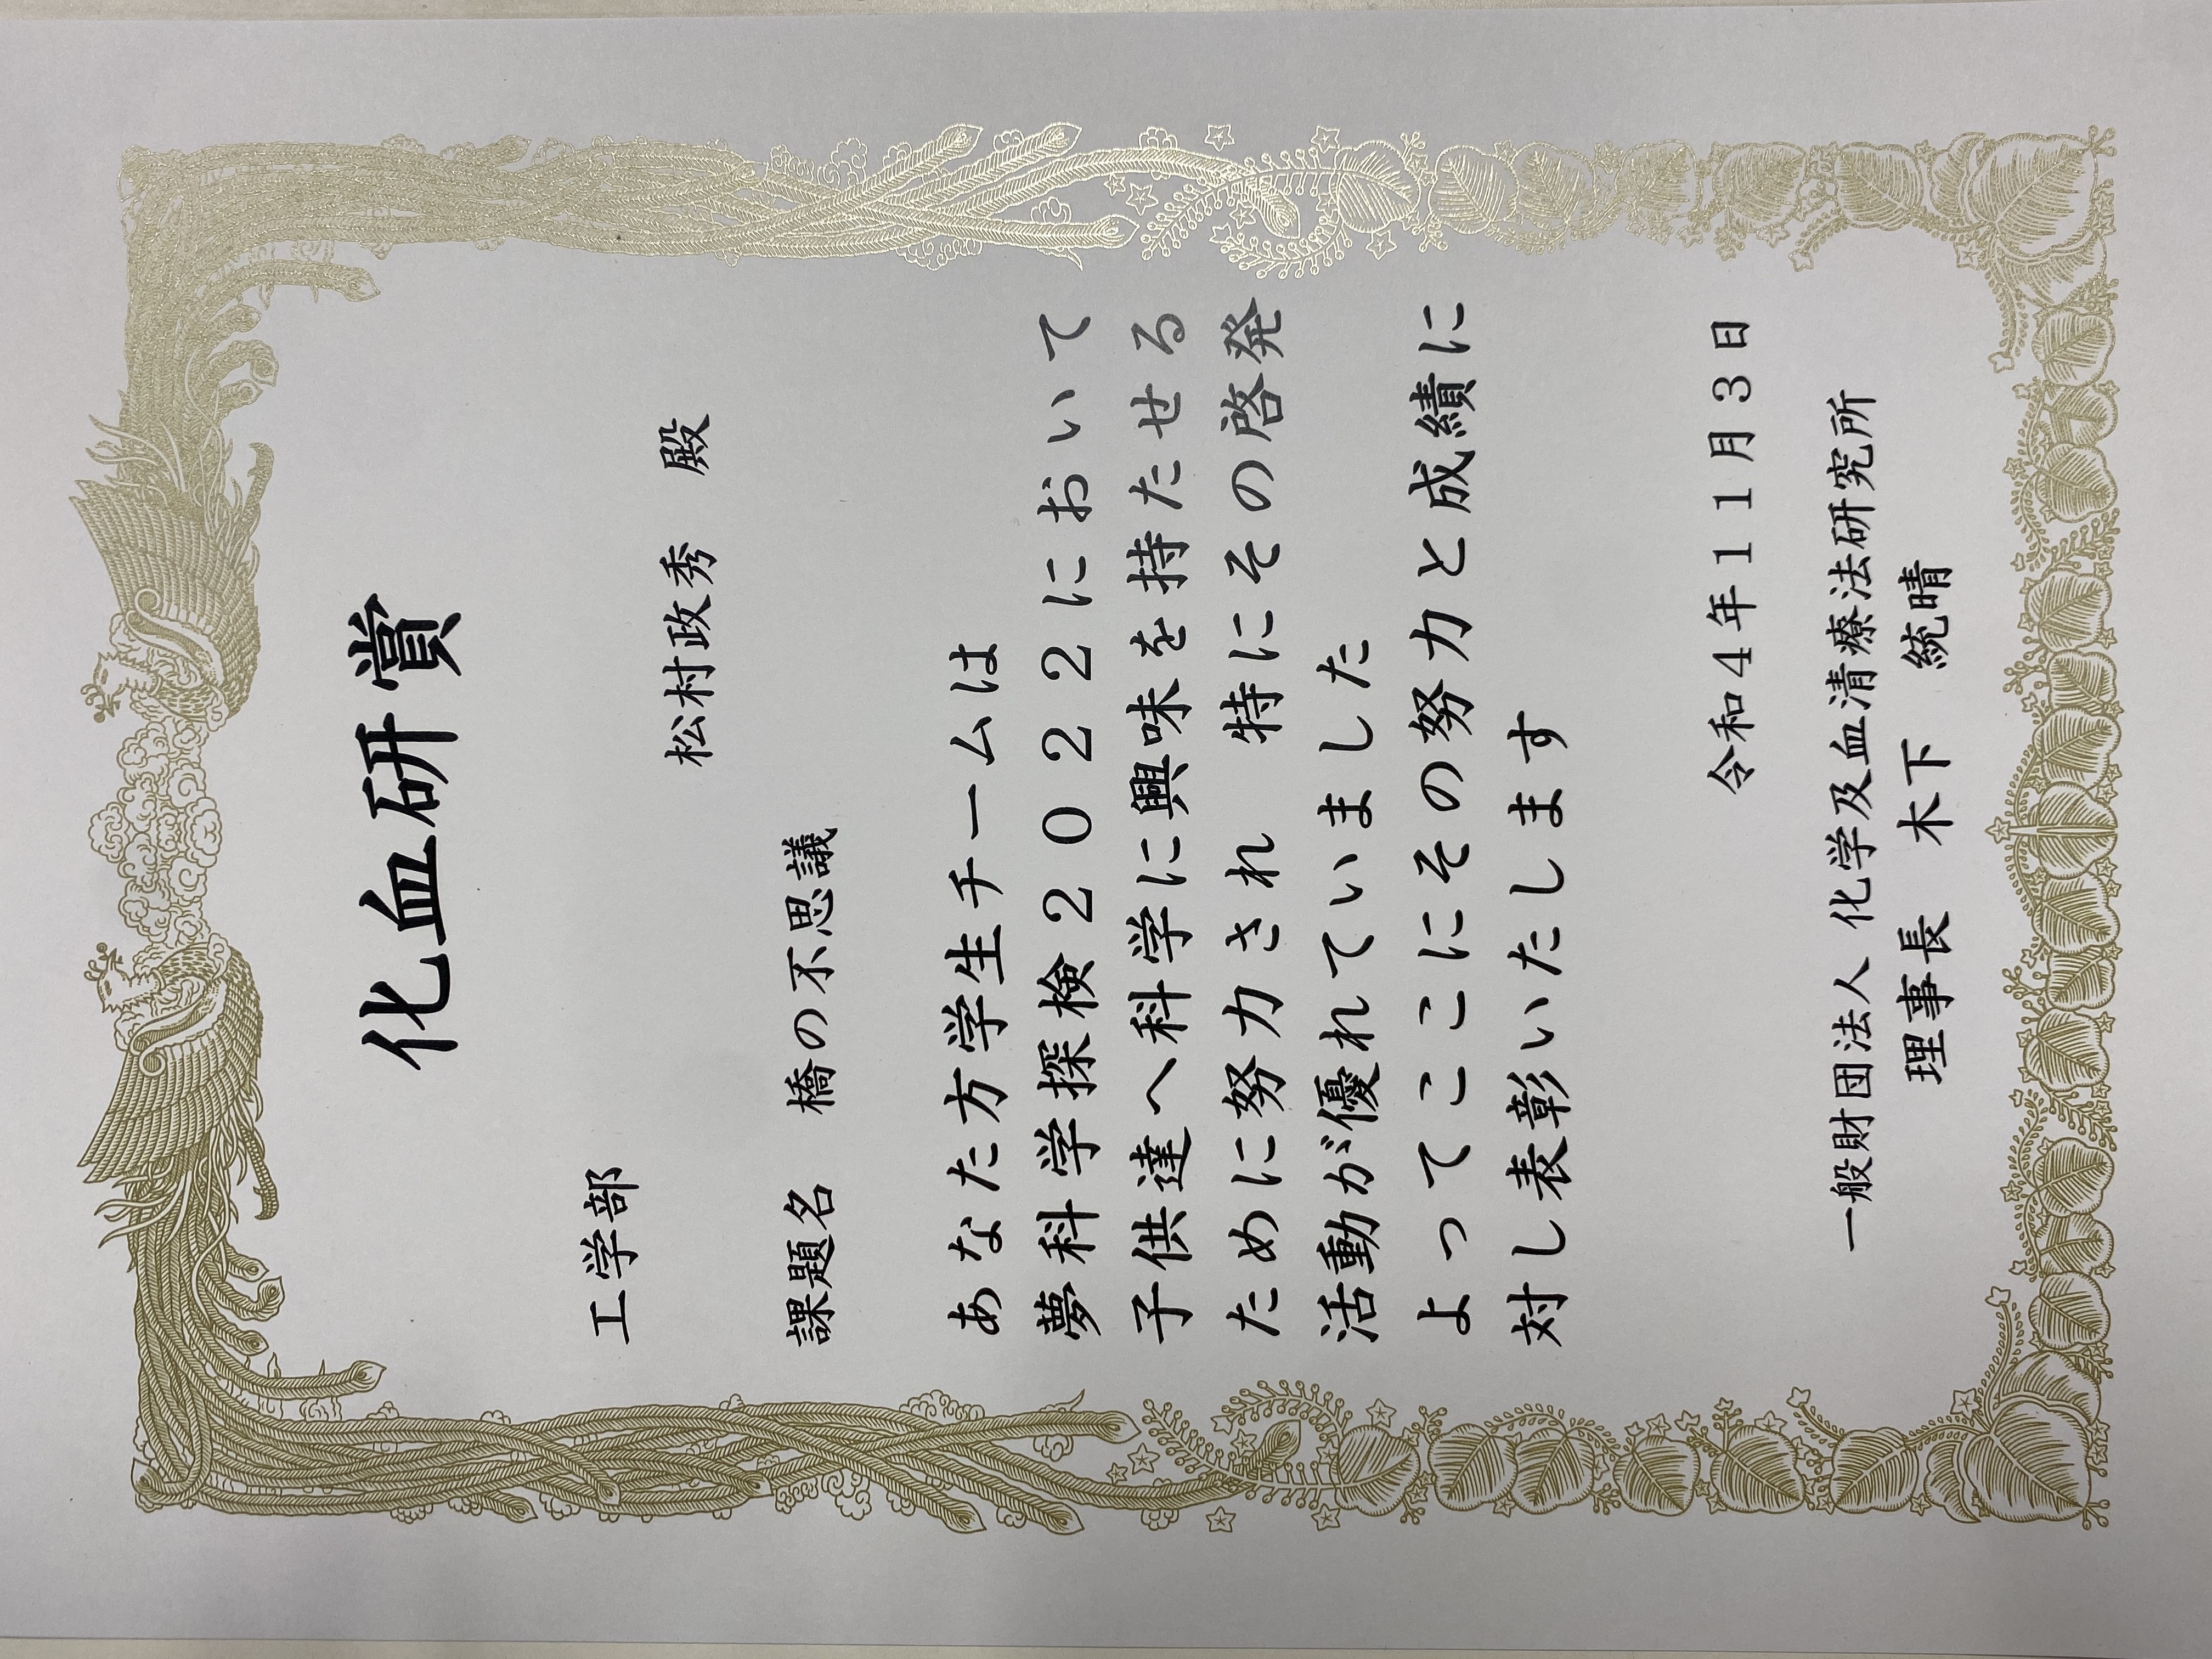 化血研賞
工学部
松村政秀　殿
課題名　橋の不思議
あなた方学生チームは
夢科学探検２０２２において
子供達へ科学に興味を持たせる
ために努力され　特にその啓発
活動が優れていました
よってここにその努力と成績に
対し表彰いたします
令和４年１１月３日
一般財団法人 化学及血清療法研究所
理事長　木下　統晴